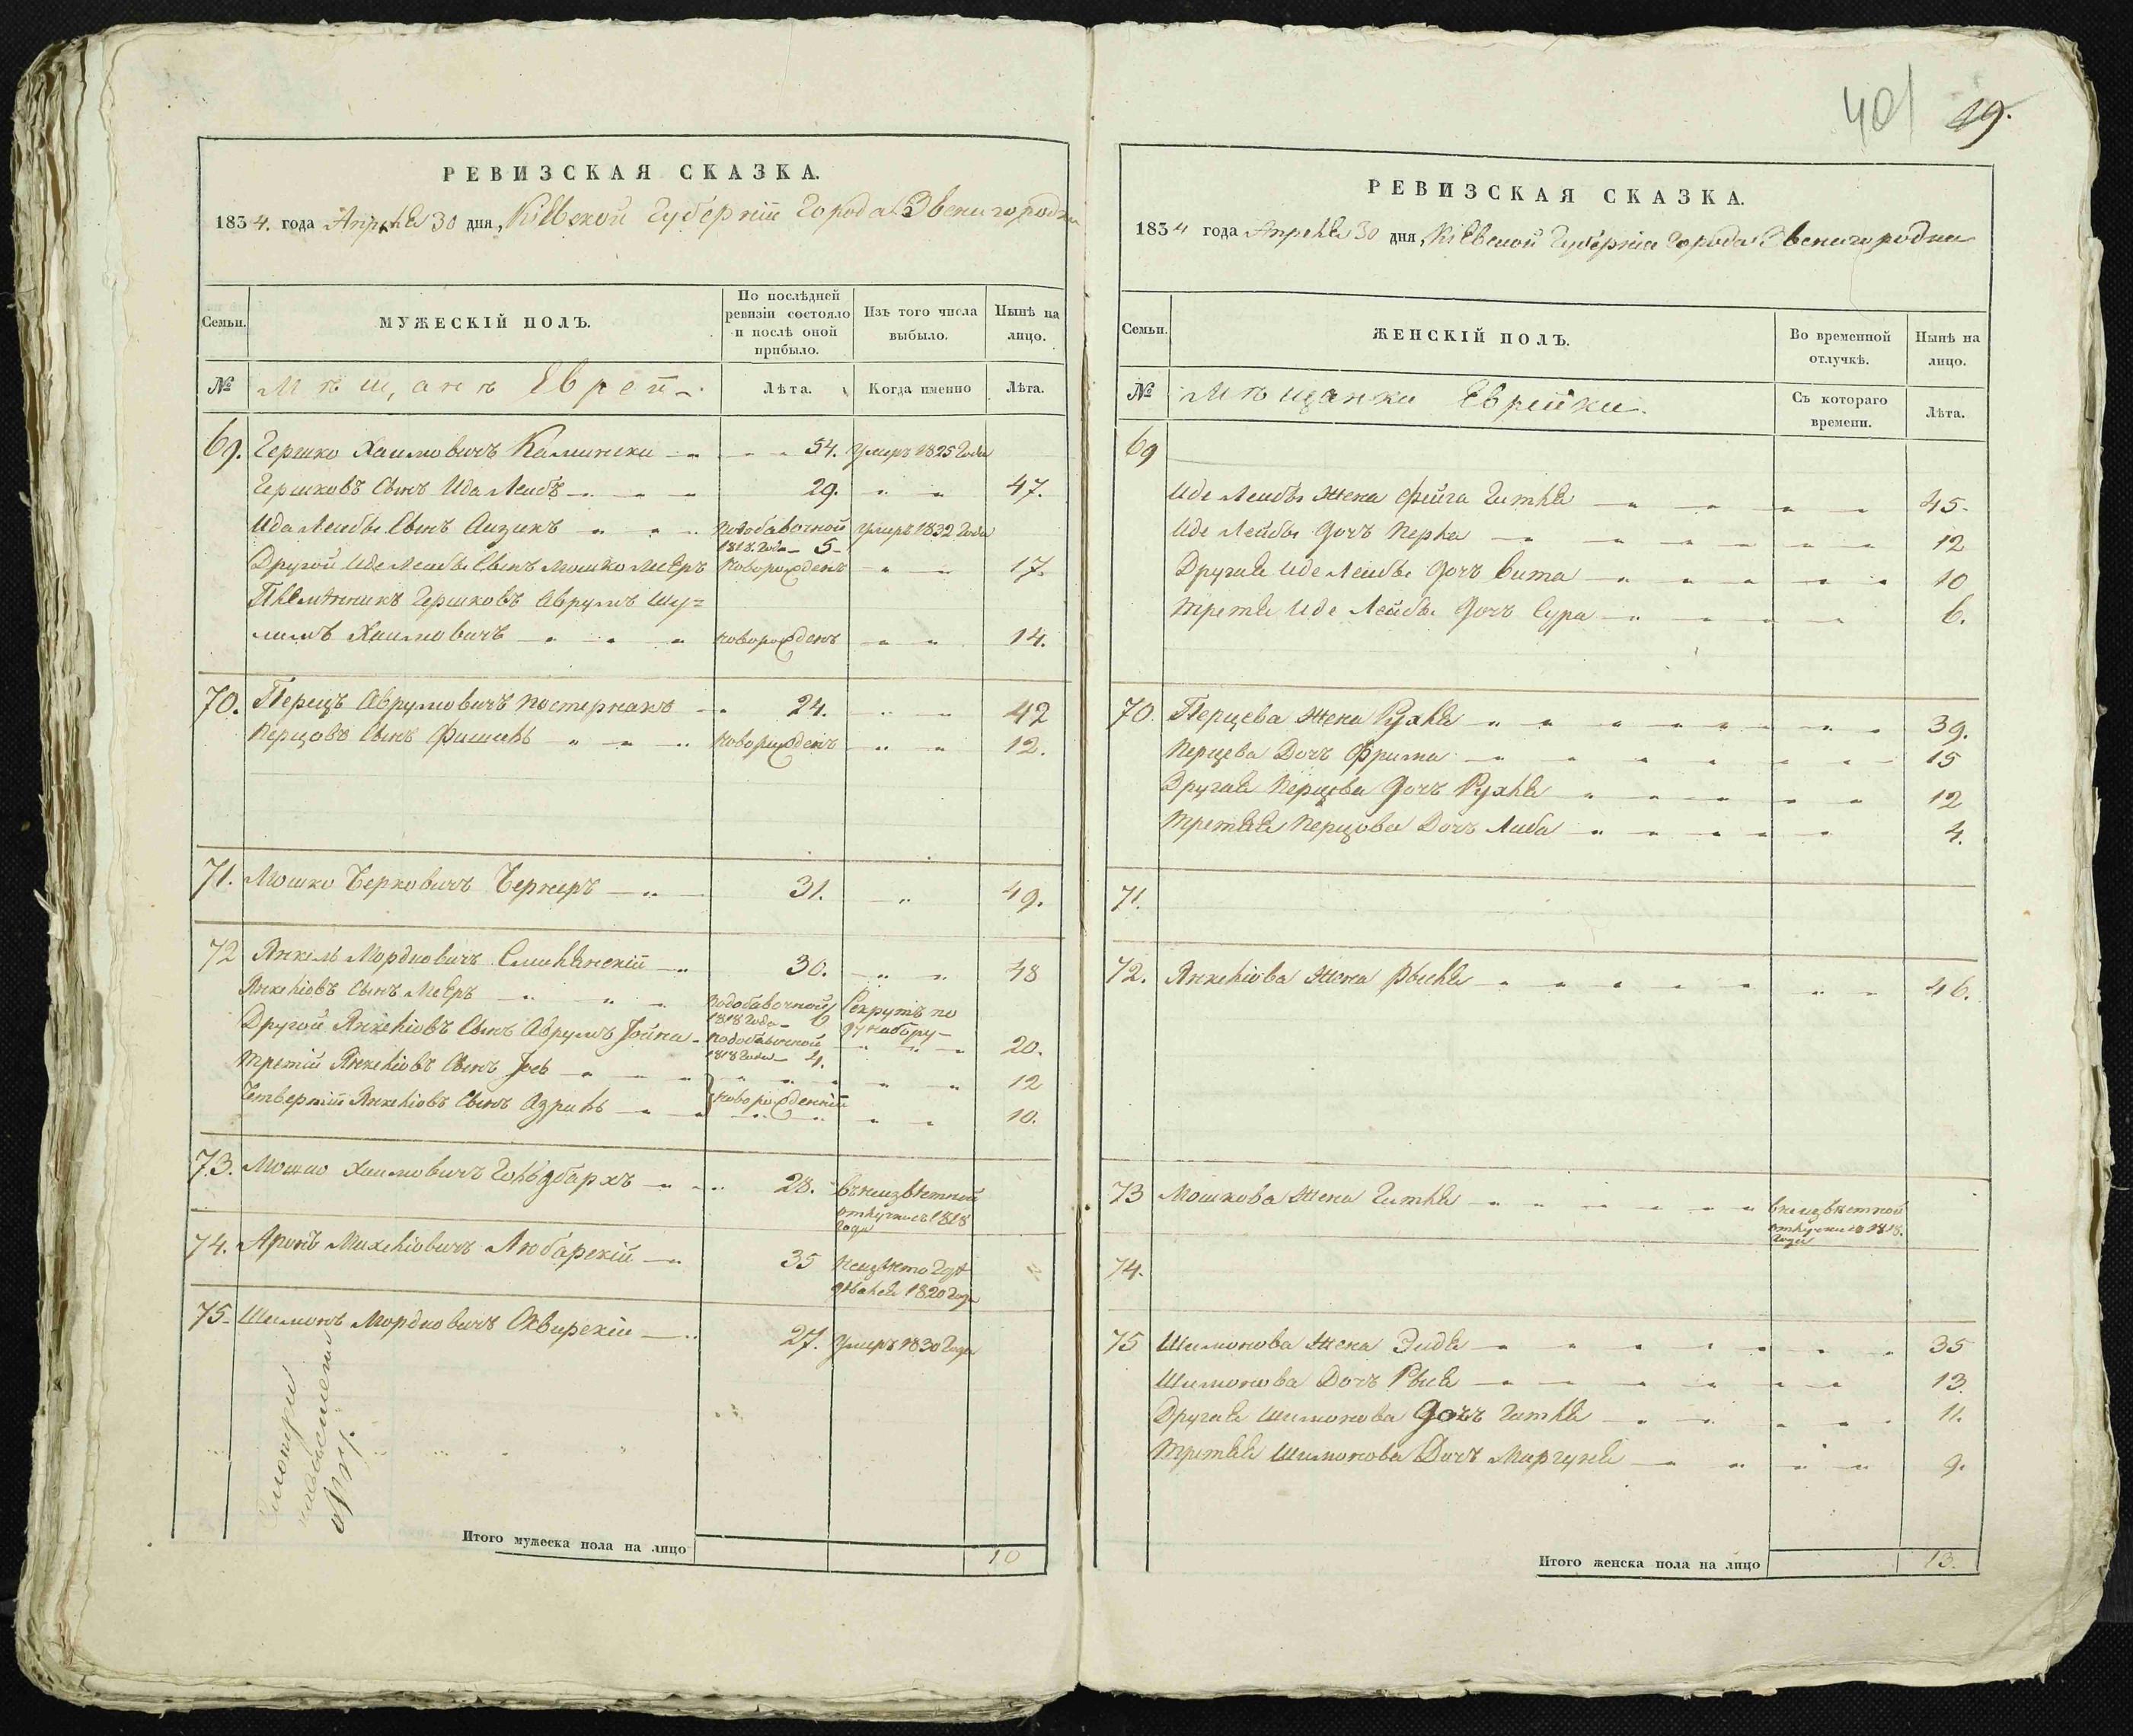 401 19.
РЕВИЗСКАЯ СКАЗКА.
1834. года Апреля 30 дня, Кіевской Губерніи Города Звенигородки
Семьи. МУЖЕСКІЙ ПОЛЪ. По послѣдней ревизіи состояло и послѣ оной прибыло. Изъ того числа выбыло. Нынѣ на лицо.
№ Мѣщане Евреи Лѣта. Когда именно Лѣта.
69. Гершко Хаимовичъ Камински 54. Умеръ 1825 Года
Гершковъ Сынъ Ида Лейбъ 29. 47.
Ида Лейбы Сынъ Аизикъ по добавочной 1818. Года 5 Умеръ 1832 Года
Другой Иде Лейбы Сынъ Мошко Мееръ Новорожденъ 17.
Племянникъ Гершковъ Аврумъ Шу=
лимъ Хаимовичъ новорожденъ 14.
70. Перецъ Аврумовичъ Постернакъ 24. 42
Перцовъ Сынъ Фишель Новорожденъ 12.
71. Мошко Берковичъ Бернеръ 31. 49.
72 Янкель Мордковичъ Смилянскій 30. 48
Янкеліовъ Сынъ Мееръ по добавочной 1818 Года 6 Рекрутъ по 97 набору
Другой Янкеліовъ Сынъ Аврумъ Іойна по добавочной 1818 Года 4. 20.
Третій Янкеліовъ Сынъ Іось 12
Четвертій Янкеліовъ Сынъ Азриль новорожденніи 10.
73. Мошко Хаимовичъ Гольдбархъ 28. въ неизвѣстной отлучке съ 1818 Года
74. Аронъ Михеліовичъ Любарскій 35 Неизвѣсто Где дѣвался 1820 Года
75. Шимонъ Мордковичъ Сквирскіи 27. Умеръ 1830 Года
Итого мужеска пола на лицо 10
РЕВИЗСКАЯ СКАЗКА.
1834 года Апреля 30 дня, Кіевской Губерніи Города Звенигородки
Семьи. ЖЕНСКІЙ ПОЛЪ. Во временной отлучкѣ. Нынѣ на лицо.
№ Мѣщанки Еврейки. Съ котораго времени. Лѣта.
69
Иде Лейбы Жена Фейга Гитля 45.
Иде Лейбы Дочъ Перля 12
Другая Иде Лейбы Дочъ Вита 10
Третя Иде Лейбы Дочъ Сура 6.
70. Перцева Жена Рухля 39.
Перцева Дочъ Фрима 15
Другая Перцева Дочъ Рухля 12
Третяя Перцова Дочъ Либа 4.
71.
72. Янкеліова Жена Рысля 46.
73 Мошкова Жена Гитля в неизвѣстной отлучки съ 1818. Года
74.
75 Шимонова Жена Эидя 35
Шимонова Дочъ Рыся 13.
Другая Шимонова Дочъ Гитля 11.
Третяя Шимонова Дочъ Маргуля 9.
Итого женска пола на лицо 13.